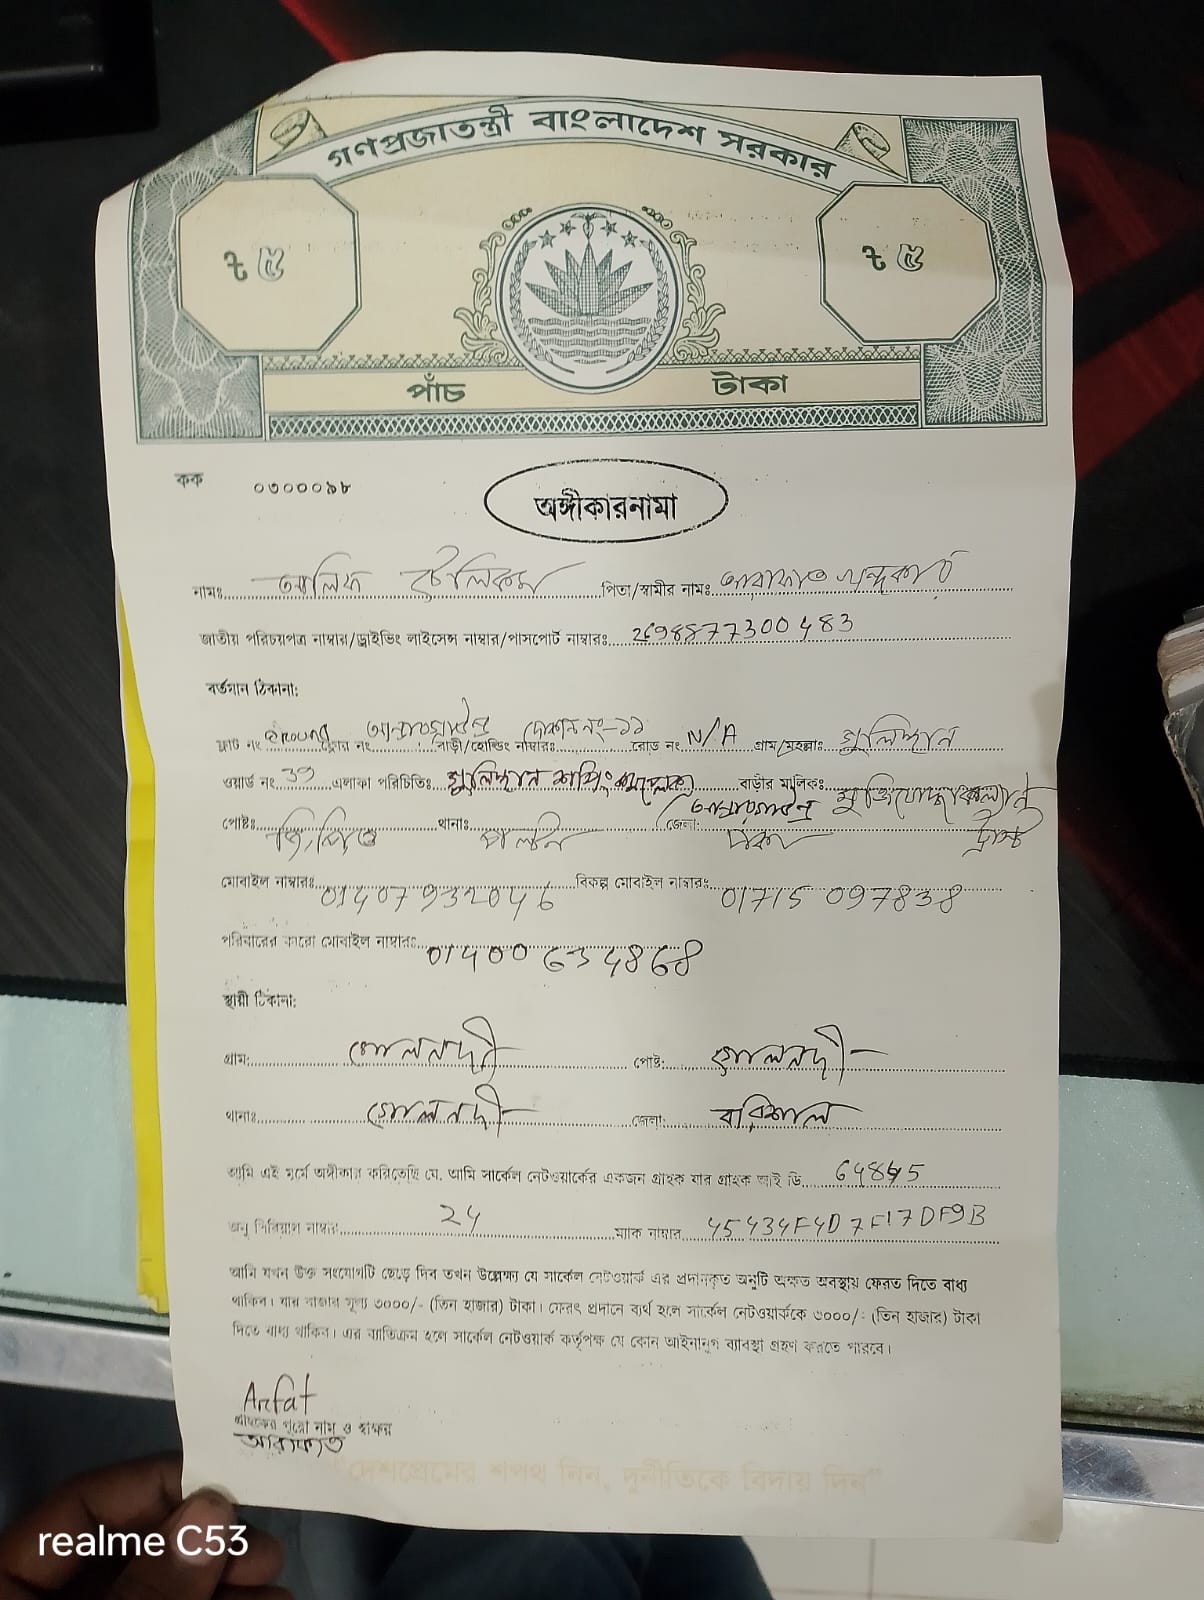 গণপ্রজাতন্ত্রী বাংলাদেশ সরকার
৳ ৫ ৳ ৫
পাঁচ টাকা
কক ০৩০০০৯৮
অঙ্গীকারনামা
নামঃ আলিফ টেলিকম পিতা/স্বামীর নামঃ আরাফাত খন্দকার
জাতীয় পরিচয়পত্র নাম্বার/ড্রাইভিং লাইসেন্স নাম্বার/পাসপোর্ট নাম্বারঃ 2698877300483
বর্তমান ঠিকানা:
ফ্লাট নং Ground ফ্লোর নং আন্ডারগ্রাউন্ড বাড়ী/হোল্ডিং নাম্বারঃ দোকান নং-১১ রোড নং N/A গ্রাম/মহল্লাঃ গুলিস্থান
ওয়ার্ড নং 39 এলাকা পরিচিতিঃ গুলিস্থান শপিং কমপ্লেক্স বাড়ীর মালিকঃ মুক্তিযোদ্ধা কল্যাণ ট্রাস্ট
(আন্ডারগ্রাউন্ড)
পোষ্টঃ জি,পিও থানাঃ পল্টন জেলা: ঢাকা
মোবাইল নাম্বারঃ 01407932046 বিকল্প মোবাইল নাম্বারঃ 01715 097838
পরিবারের কারো মোবাইল নাম্বারঃ 01400634868
স্থায়ী ঠিকানা:
গ্রাম: গৌরনদী পোষ্ট: গৌরনদী
থানাঃ গৌরনদী জেলা: বরিশাল
আমি এই মর্মে অঙ্গীকার করিতেছি যে, আমি সার্কেল নেটওয়ার্কের একজন গ্রাহক যার গ্রাহক আই ডি 64845
অনু সিরিয়াল নাম্বার 24 ম্যাক নাম্বার 45434F4D7F17DF9B
আমি যখন উক্ত সংযোগটি ছেড়ে দিব তখন উল্লেক্ষ্য যে সার্কেল নেটওয়ার্ক এর প্রদানকৃত অনুটি অক্ষত অবস্থায় ফেরত দিতে বাধ্য
থাকিব। যার বাজার মূল্য ৩০০০/- (তিন হাজার) টাকা। ফেরৎ প্রদানে ব্যর্থ হলে সার্কেল নেটওয়ার্ককে ৩০০০/- (তিন হাজার) টাকা
দিতে বাধ্য থাকিব। এর ব্যতিক্রম হলে সার্কেল নেটওয়ার্ক কর্তৃপক্ষ যে কোন আইনানুগ ব্যাবস্থা গ্রহণ করতে পারবে।
Arfat
গ্রাহকের পুরো নাম ও স্বাক্ষর
আরাফাত
"দেশপ্রেমের শপথ নিন, দুর্নীতিকে বিদায় দিন"
realme C53